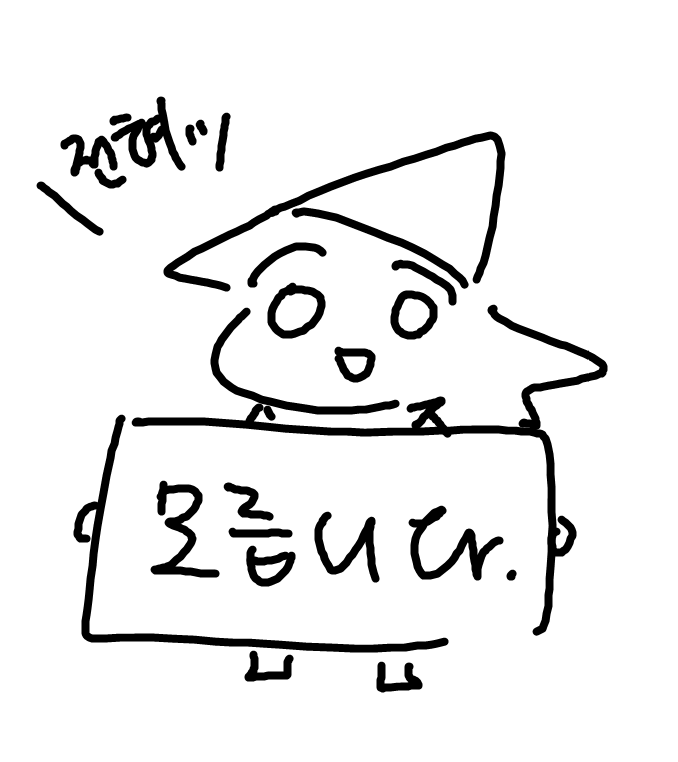 전혀"
모릅니다.